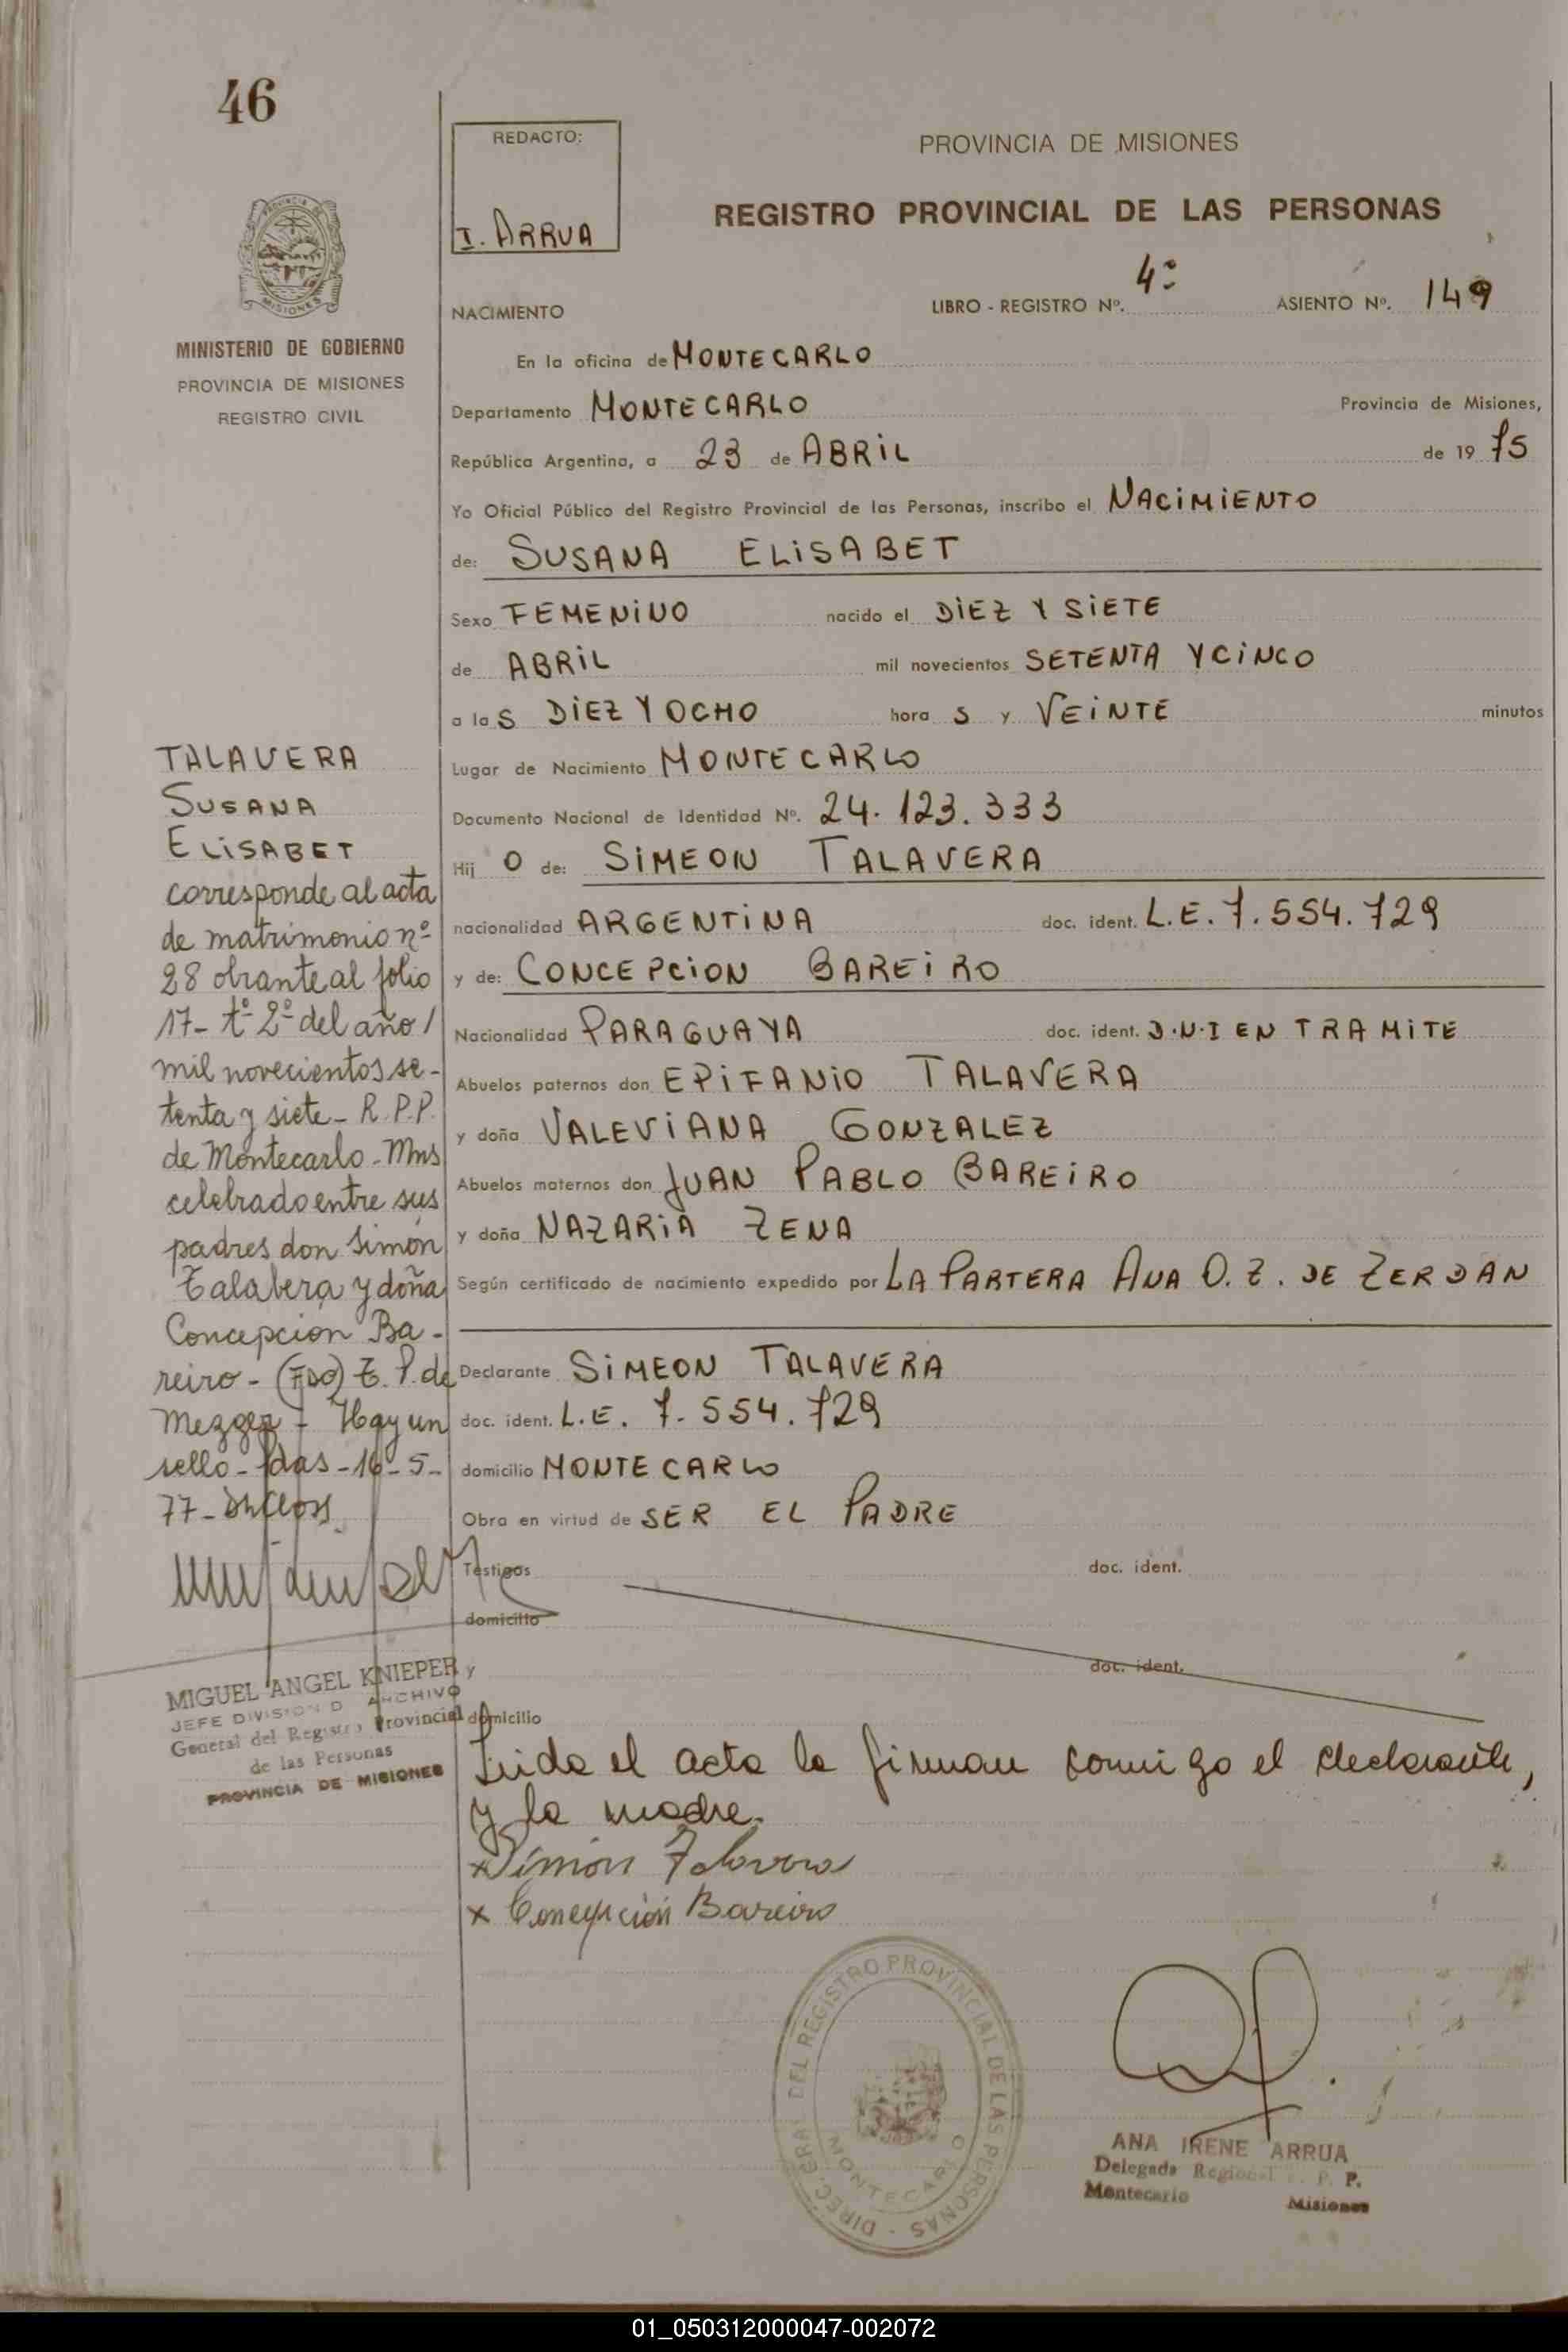 46
REDACTO:
I. ARRUA
PROVINCIA DE MISIONES
REGISTRO PROVINCIAL DE LAS PERSONAS
MISIONES
MINISTERIO DE GOBIERNO
PROVINCIA DE MISIONES
REGISTRO CIVIL
NACIMIENTO LIBRO - REGISTRO Nº. 4º ASIENTO Nº. 149
En la oficina de MONTECARLO
Departamento MONTECARLO Provincia de Misiones,
República Argentina, a 23 de ABRIL de 19 75
Yo Oficial Público del Registro Provincial de las Personas, inscribo el NACIMIENTO
de: SUSANA ELISABET
Sexo FEMENINO nacido el DIEZ Y SIETE
de ABRIL mil novecientos SETENTA Y CINCO
a las DIEZ Y OCHO hora s y VEINTE minutos
Lugar de Nacimiento MONTECARLO
Documento Nacional de Identidad Nº. 24.123.333
Hij O de: SIMEON TALAVERA
nacionalidad ARGENTINA doc. ident. L.E. 7.554.729
y de: CONCEPCION BAREIRO
Nacionalidad PARAGUAYA doc. ident. D.N.I EN TRAMITE
Abuelos paternos don EPIFANIO TALAVERA
y doña VALEVIANA GONZALEZ
Abuelos maternos don JUAN PABLO BAREIRO
y doña NAZARIA ZENA
Según certificado de nacimiento expedido por LA PARTERA ANA O. Z. DE ZERDAN
Declarante SIMEON TALAVERA
doc. ident. L.E. 7.554.729
domicilio MONTECARLO
Obra en virtud de SER EL PADRE
Testigos doc. ident.
domicilio
y doc. ident.
domicilio
Leida el acta la firman conmigo el declarante,
y la madre.
x Simón Talavera
x Concepción Bareiro
TALAVERA
SUSANA
ELISABET
corresponde al acta
de matrimonio nº
28 obrante al folio
17- tº 2º del año /
mil novecientos se-
tenta y siete - R.P.P.
de Montecarlo - Mns
celebrado entre sus
padres don Simón
Talabera y doña
Concepcion Ba-
reiro - (FDO) E. P. de
Mezger - Hay un
sello - Pdas - 16 - 5 -
77 -
MIGUEL ANGEL KNIEPER
JEFE DIVISION D ARCHIVO
General del Registro Provincial
de las Personas
PROVINCIA DE MISIONES
DIREC. GRAL. DEL REGISTRO PROVINCIAL DE LAS PERSONAS -
MONTECARLO
ANA IRENE ARRUA
Delegada Regional R. P. P.
Montecarlo Misiones
01_050312000047-002072